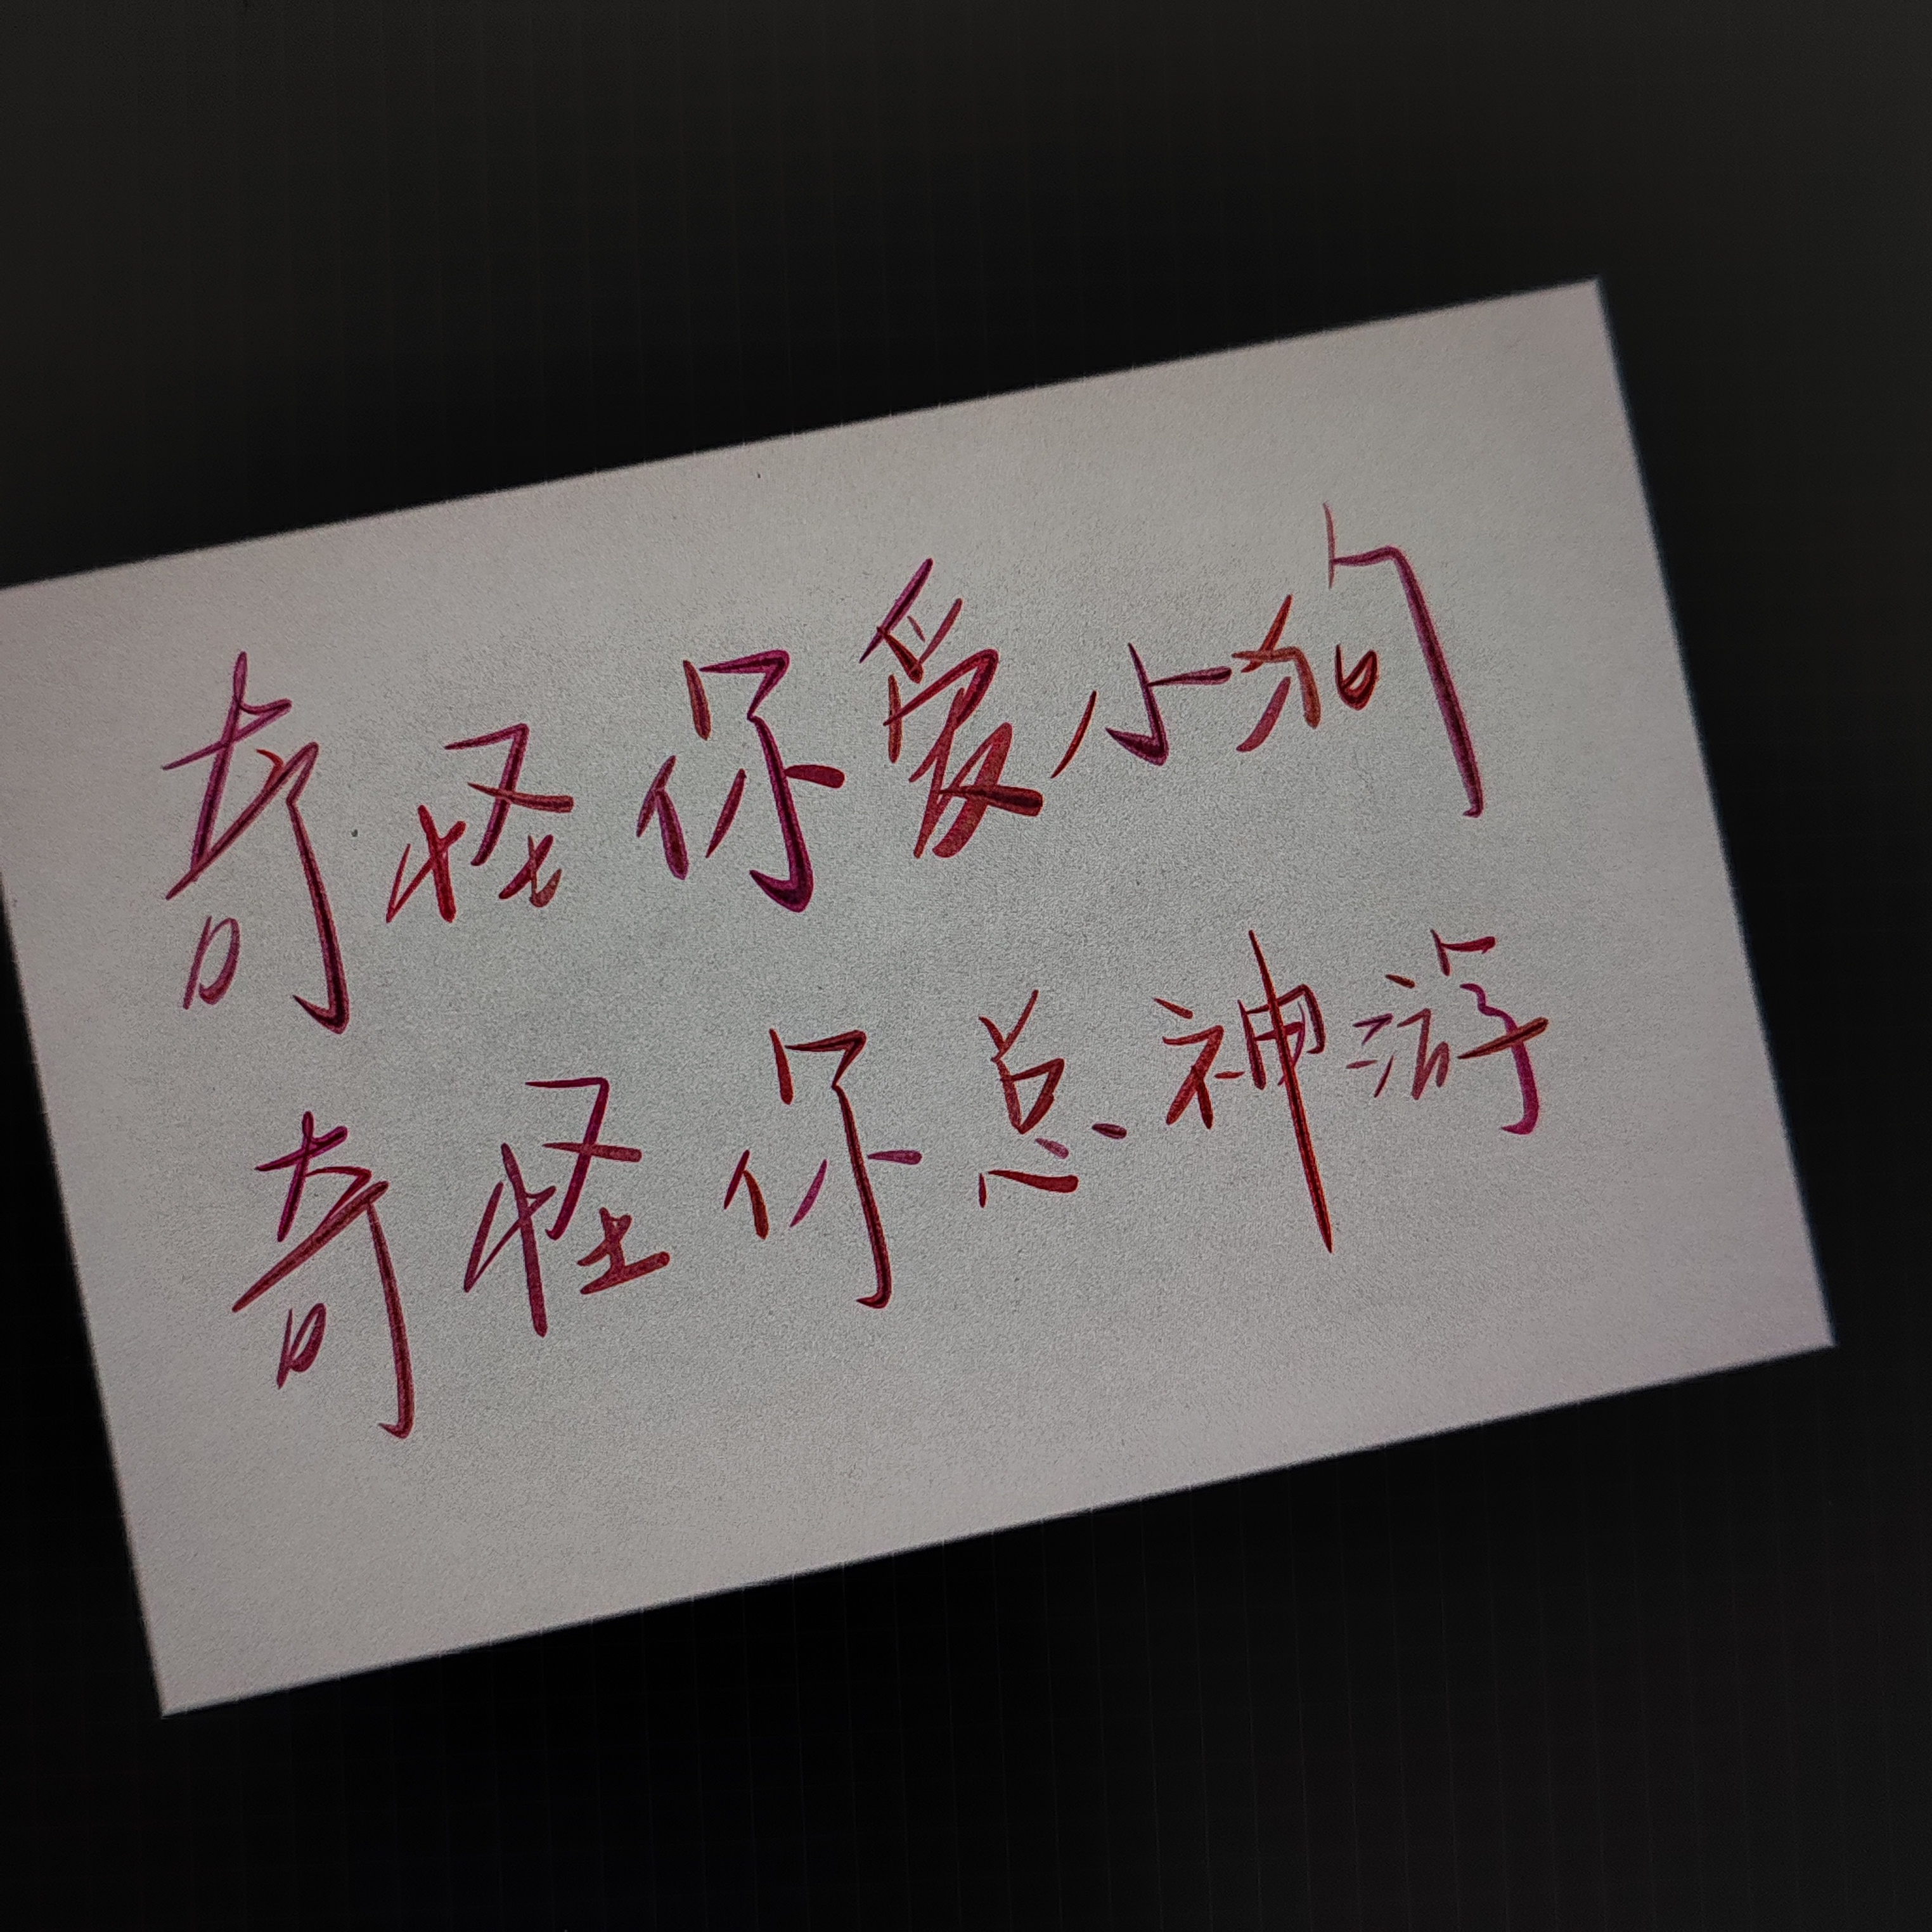 奇怪你爱小狗
奇怪你总神游